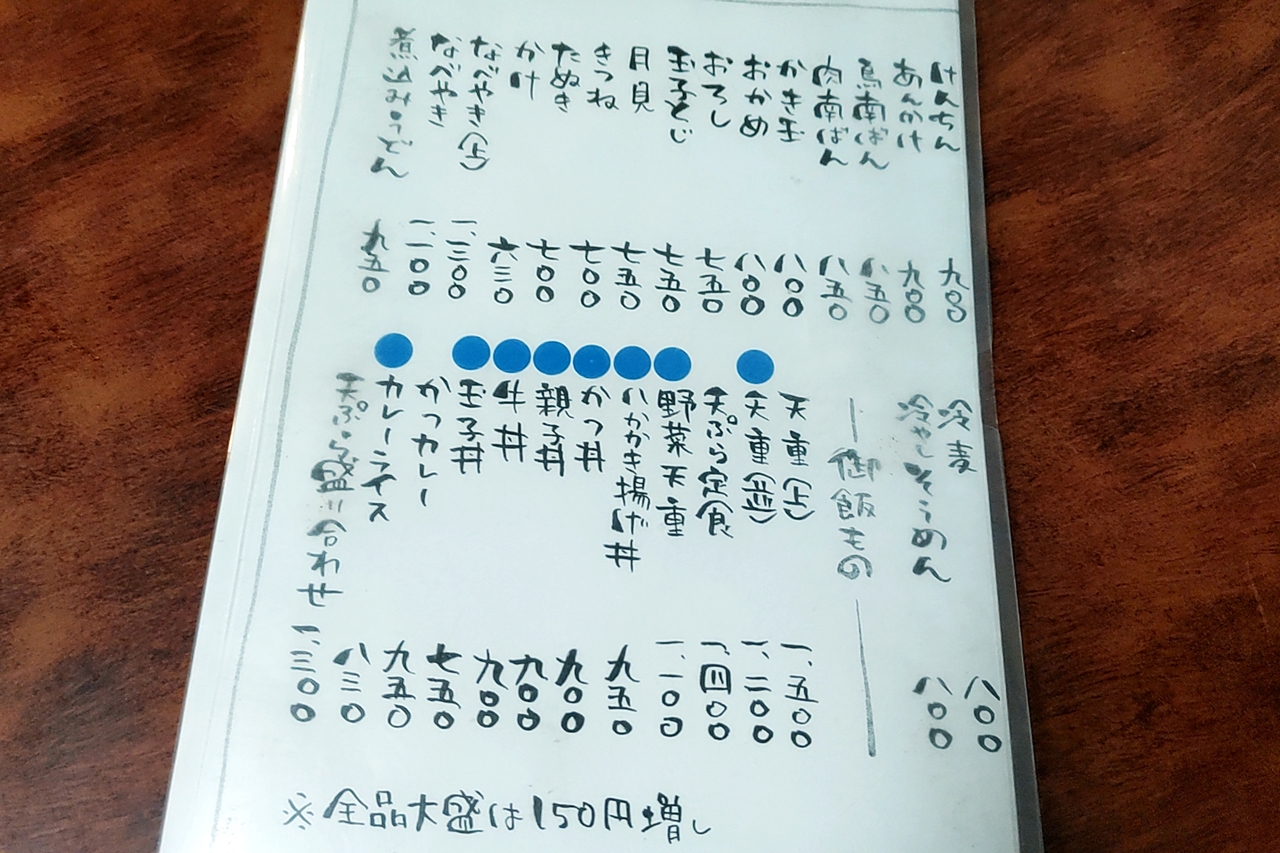 けんちん 九〇〇
あんかけ 九〇〇
鳥南ばん 八五〇
肉南ばん 八五〇
かき玉 八〇〇
おかめ 八〇〇
おろし 七五〇
玉子とじ 七五〇
月見 七五〇
きつね 七〇〇
たぬき 七〇〇
かけ 六三〇
なべやき(上) 一、三〇〇
なべやき 一、一〇〇
煮込みうどん 九五〇
冷麦 八〇〇
冷やしそうめん 八〇〇
御飯もの
天重(上) 一、五〇〇
天重(並) 一、二〇〇
天ぷら定食 一、四〇〇
野菜天重 一、一〇〇
いかかき揚げ丼 九五〇
かつ丼 九〇〇
親子丼 九〇〇
牛丼 九〇〇
玉子丼 七五〇
かつカレー 九五〇
カレーライス 八三〇
天ぷら盛り合わせ 一、三〇〇
※全品大盛は150円増し